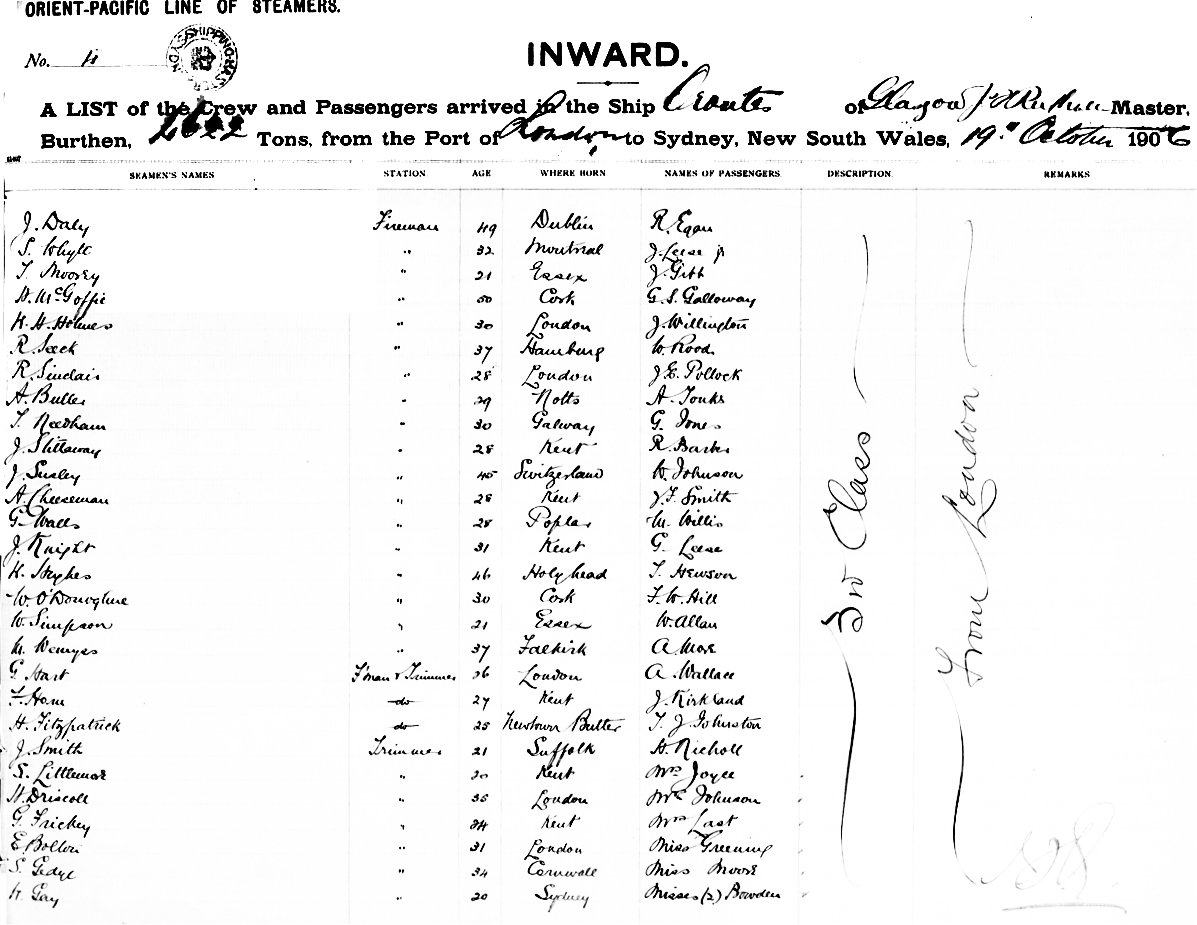 ORIENT-PACIFIC LINE OF STEAMERS.
No. 4
INWARD.
A LIST of the Crew and Passengers arrived in the Ship Orontes of Glasgow Master,
Burthen, 4622 Tons, from the Port of London to Sydney, New South Wales, 19th October 1906
SEAMEN'S NAMES STATION AGE WHERE BORN NAMES OF PASSENGERS DESCRIPTION REMARKS
J. Daly Fireman 49 Dublin R. Egan
S. Whyte " 32 Montreal J. Leese jr
T. Moorey " 21 Essex J. Gibb
H. McGoffie " 50 Cork G. S. Galloway
H. H. Holmes " 30 London J. Willington
R. Seeck " 37 Hamburg W. Rood
R. Sinclair " 28 London J. E. Pollock
A. Butler " 29 Notts A. Tonks
T. Needham " 30 Galway G. Jones
J. " 28 Kent R. Banks
J. Susley " 45 Switzerland W. Johnson
A. Cheeseman " 28 Kent J. T. Smith
G. Walls " 28 Poplar M. Willis
J. Knight " 31 Kent G. Leese
H. Hughes " 46 Holyhead T. Hewson
W. O'Donoghue " 30 Cork F. W. Hill
W. Simpson " 21 Essex W. Allan
M. Wemyss " 37 Falkirk A. More
G. Hart F'man & Trimmer 26 London A. Wallace
F. Ham do 27 Kent J. Kirkland
H. Fitzpatrick do 25 Newtown Butler T. J. Johnston
J. Smith Trimmer 21 Suffolk A. Nicholl
S. Littlemore " 20 Kent Mrs Joyce
H. Driscoll " 35 London Mrs Johnson
G. Trickey " 24 Kent Mrs Last
E. Bolton " 31 London Miss Greening
S. Gedye " 34 Cornwall Miss Moore
H. Gay " 20 Sydney Misses (2) Bowden
3rd Class
From London